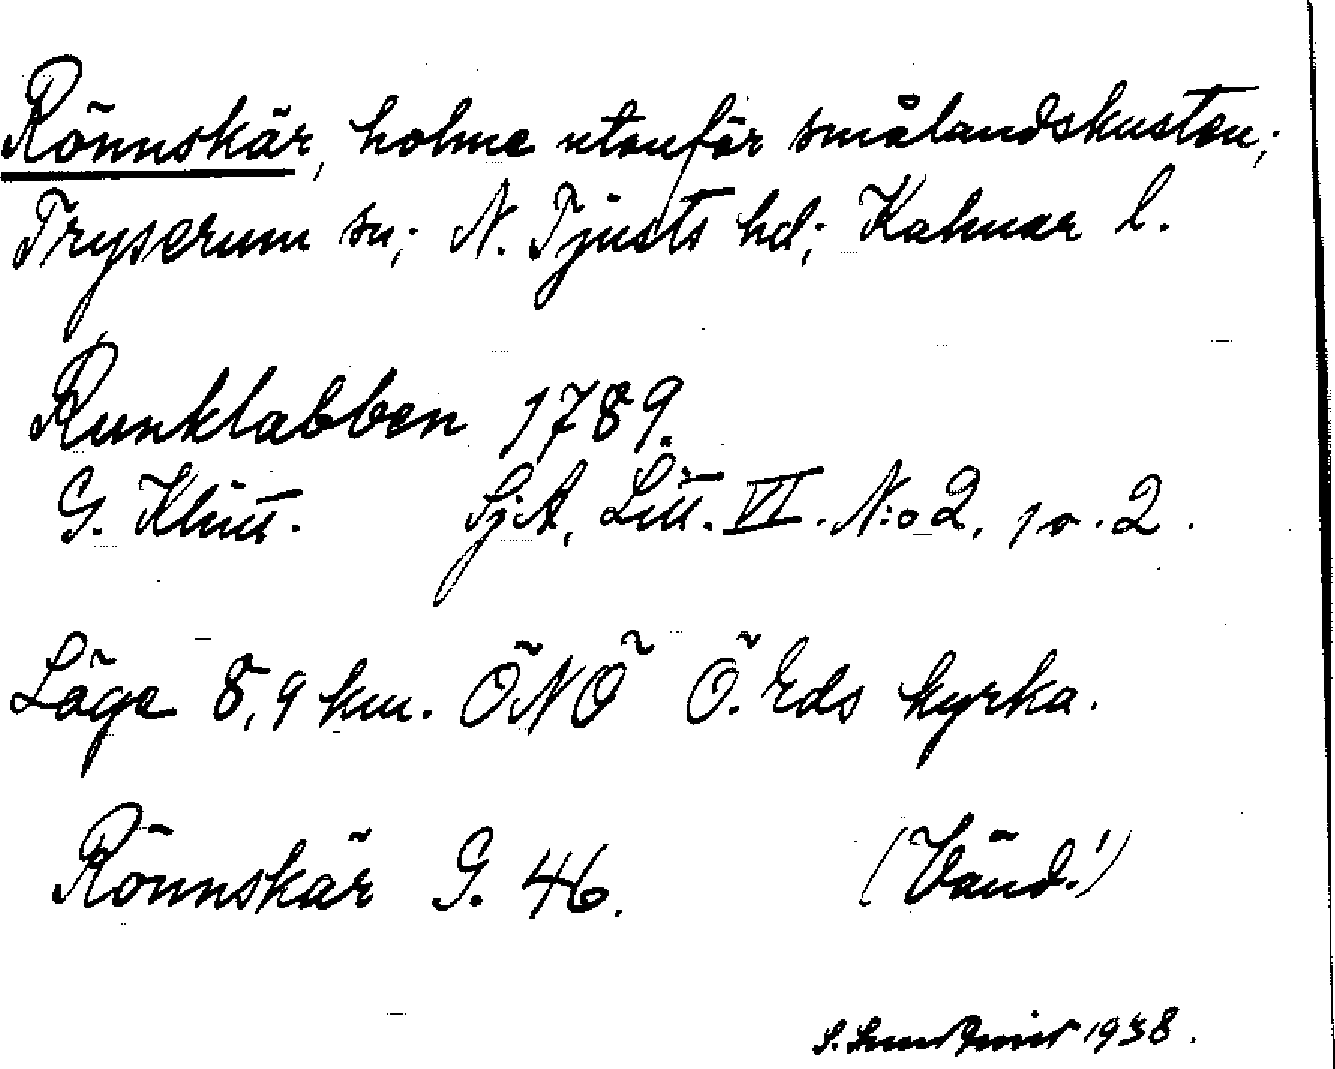 Rönnskär, holme utanför smålandskusten;
Tryserum sn; N. Tjusts hd; Kalmar l.
Runklabben 1789.
G. Klint. SjA, Litt. VI. N:o 2, p. 2.
Läge 8,9 km. ÖNÖ Ö. Eds kyrka.
Rönnskär G. 46. (Vänd!)
S. 1938.